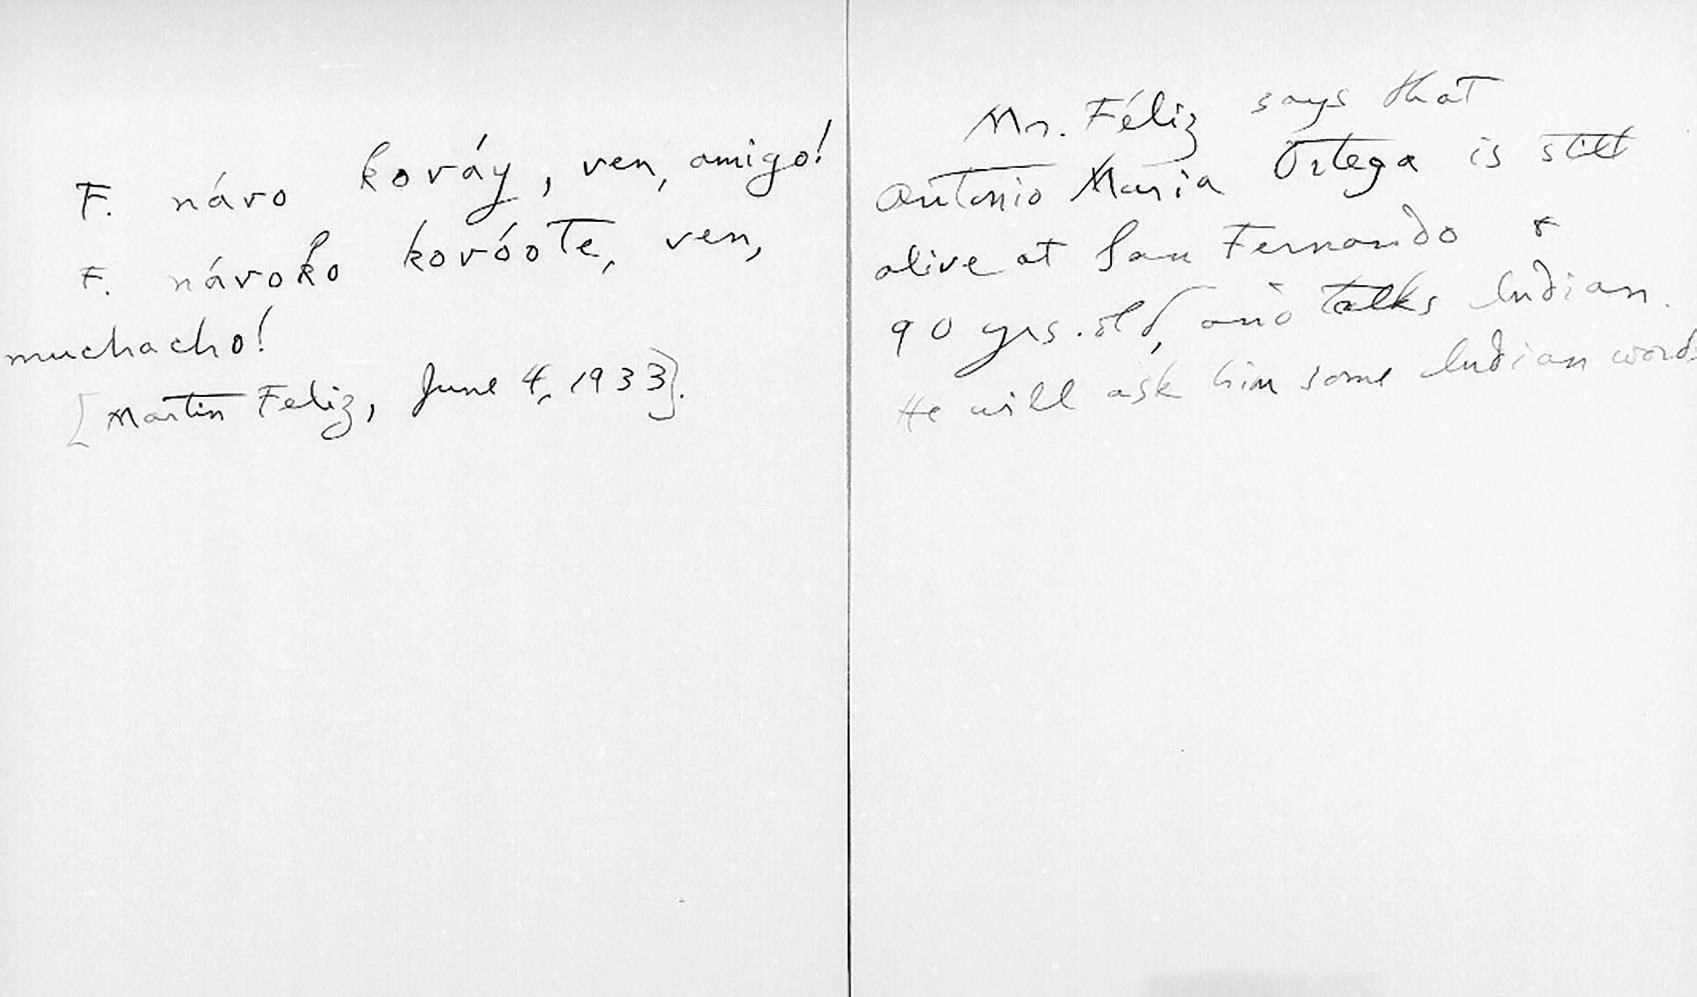 F. návo kováy, ven, amigo!
F. návoko kovóote, ven,
muchacho!
[Martin Feliz, June 4, 1933].
Mr. Féliz says that
Antonio Maria Ortega is still
alive at San Fernando &
90 yrs. old, and talks Indian.
He will ask him some Indian words